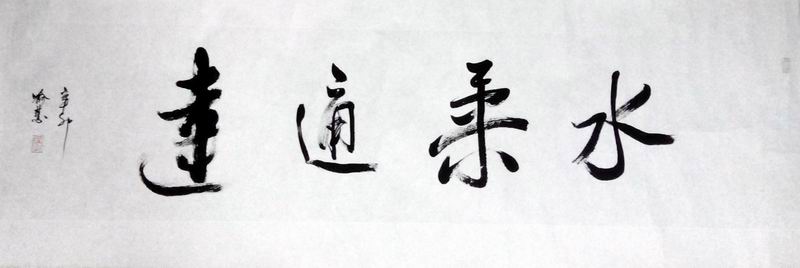 水柔通達
辛卯